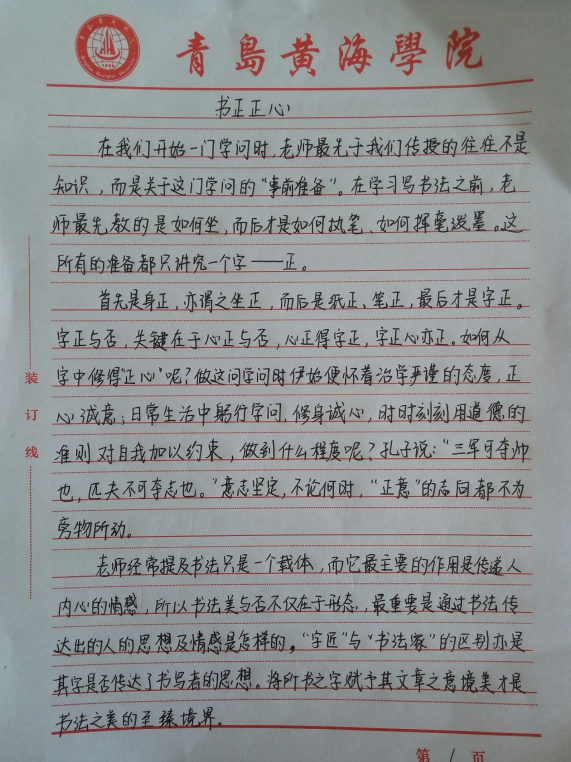 青島黄海學院
书正正心
在我们开始一门学问时,老师最先于我们传授的往往不是
知识,而是关于这门学问的“事前准备”。在学习写书法之前,老
师最先教的是如何坐,而后才是如何执笔、如何挥毫泼墨。这
所有的准备都只讲究一个字——正。
首先是身正,亦谓之坐正,而后是纸正、笔正,最后才是字正。
字正与否,关键在于心正与否,心正得字正,字正心亦正。如何从
字中修得“正心”呢?做这问学问时伊始便怀着治学严谨的态度,正
心诚意;日常生活中躬行学问,修身诚心,时时刻刻用道德的
准则对自我加以约束,做到什么程度呢?孔子说:“三军可夺帅
也,匹夫不可夺志也。”意志坚定,不论何时,“正意”的志向都不为
旁物所动。
老师经常提及书法只是一个载体,而它最主要的作用是传递人
内心的情感,所以书法美与否不仅在于形态,最重要是通过书法传
达出的人的思想及情感是怎样的。“字匠”与“书法家”的区别亦是
其字是否传达了书写者的思想。将所书之字赋予其文章之意境美才是
书法之美的至臻境界。
装
订
线
第 1 页